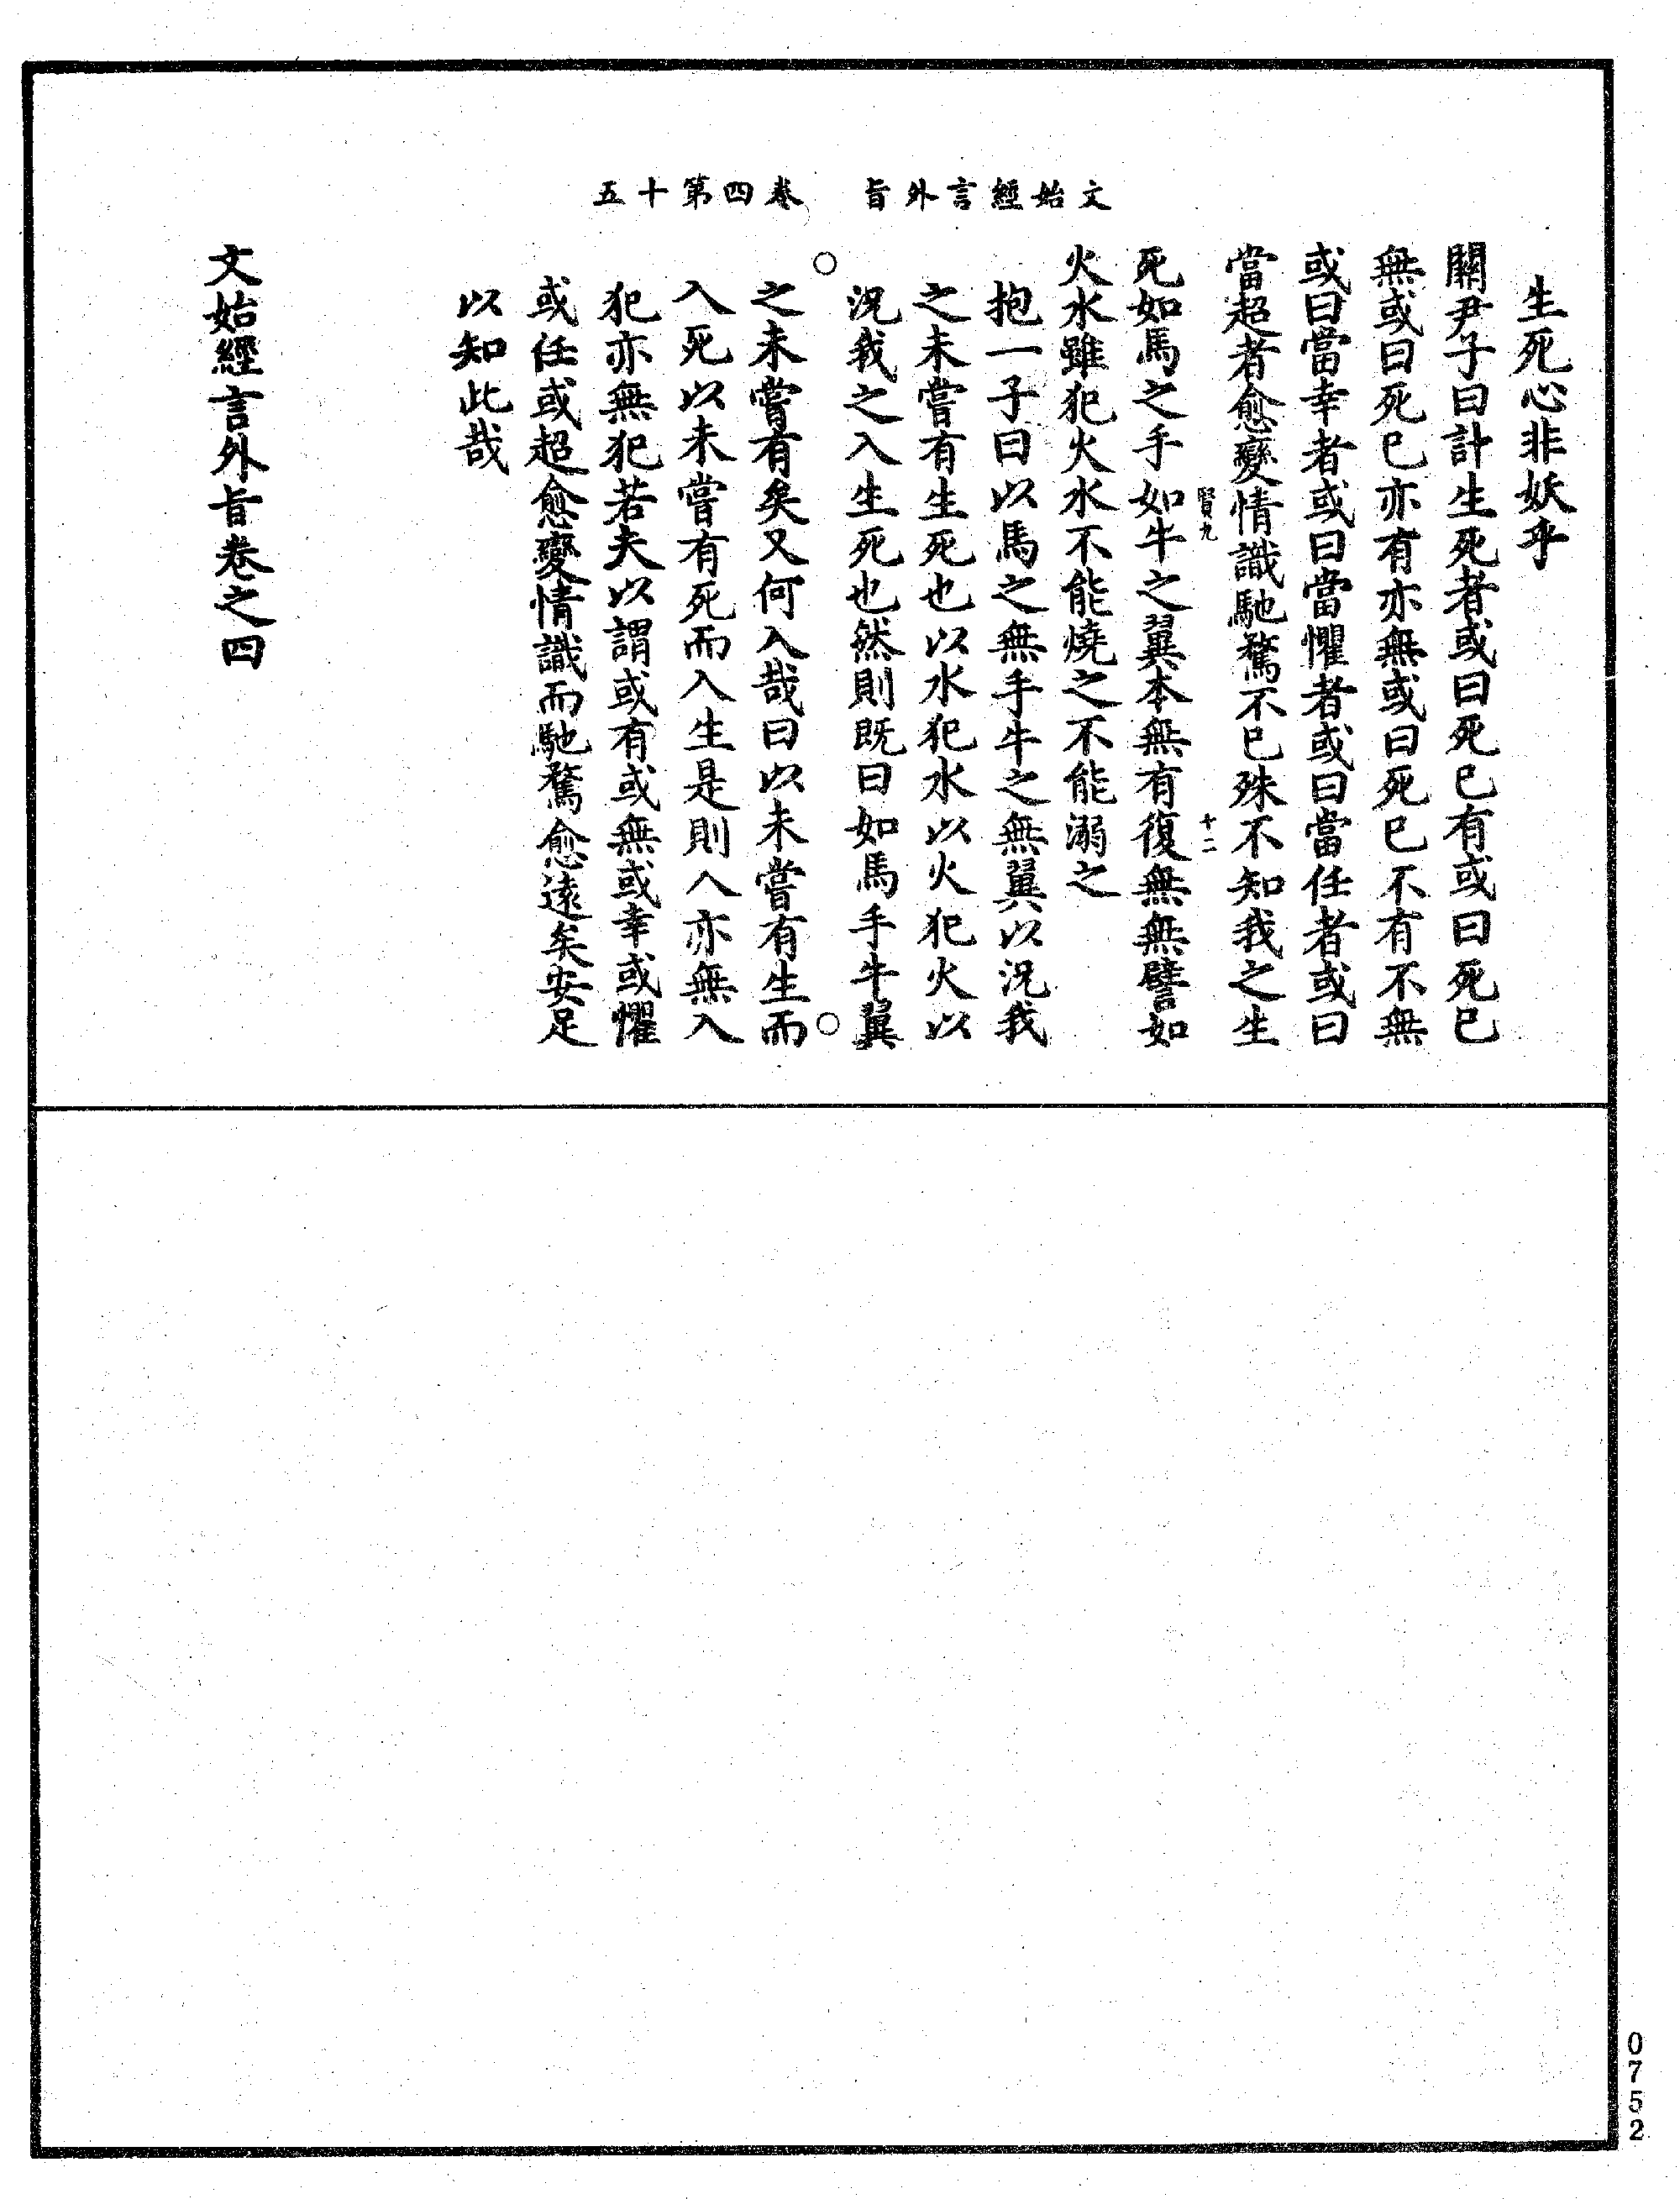 文始經言外旨　卷四第十五
生死心非妖乎
關尹子曰計生死者或曰死已有或曰死已
無或曰死已亦有亦無或曰死已不有不無
或曰當幸者或曰當懼者或曰當任者或曰
當超者愈變情識馳騖不已殊不知我之生
賢九　十二
死如馬之手如牛之翼本無有復無無譬如
火水雖犯火水不能燒之不能溺之
抱一子曰以馬之無手牛之無翼以況我
之未嘗有生死也以水犯水以火犯火以
況我之入生死也然則既曰如馬手牛翼
之未嘗有矣又何入哉曰以未嘗有生而
入死以未嘗有死而入生是則入亦無入
犯亦無犯若夫以謂或有或無或幸或懼
或任或超愈變情識而馳騖愈遠矣安足
以知此哉
文始經言外旨卷之四
0752